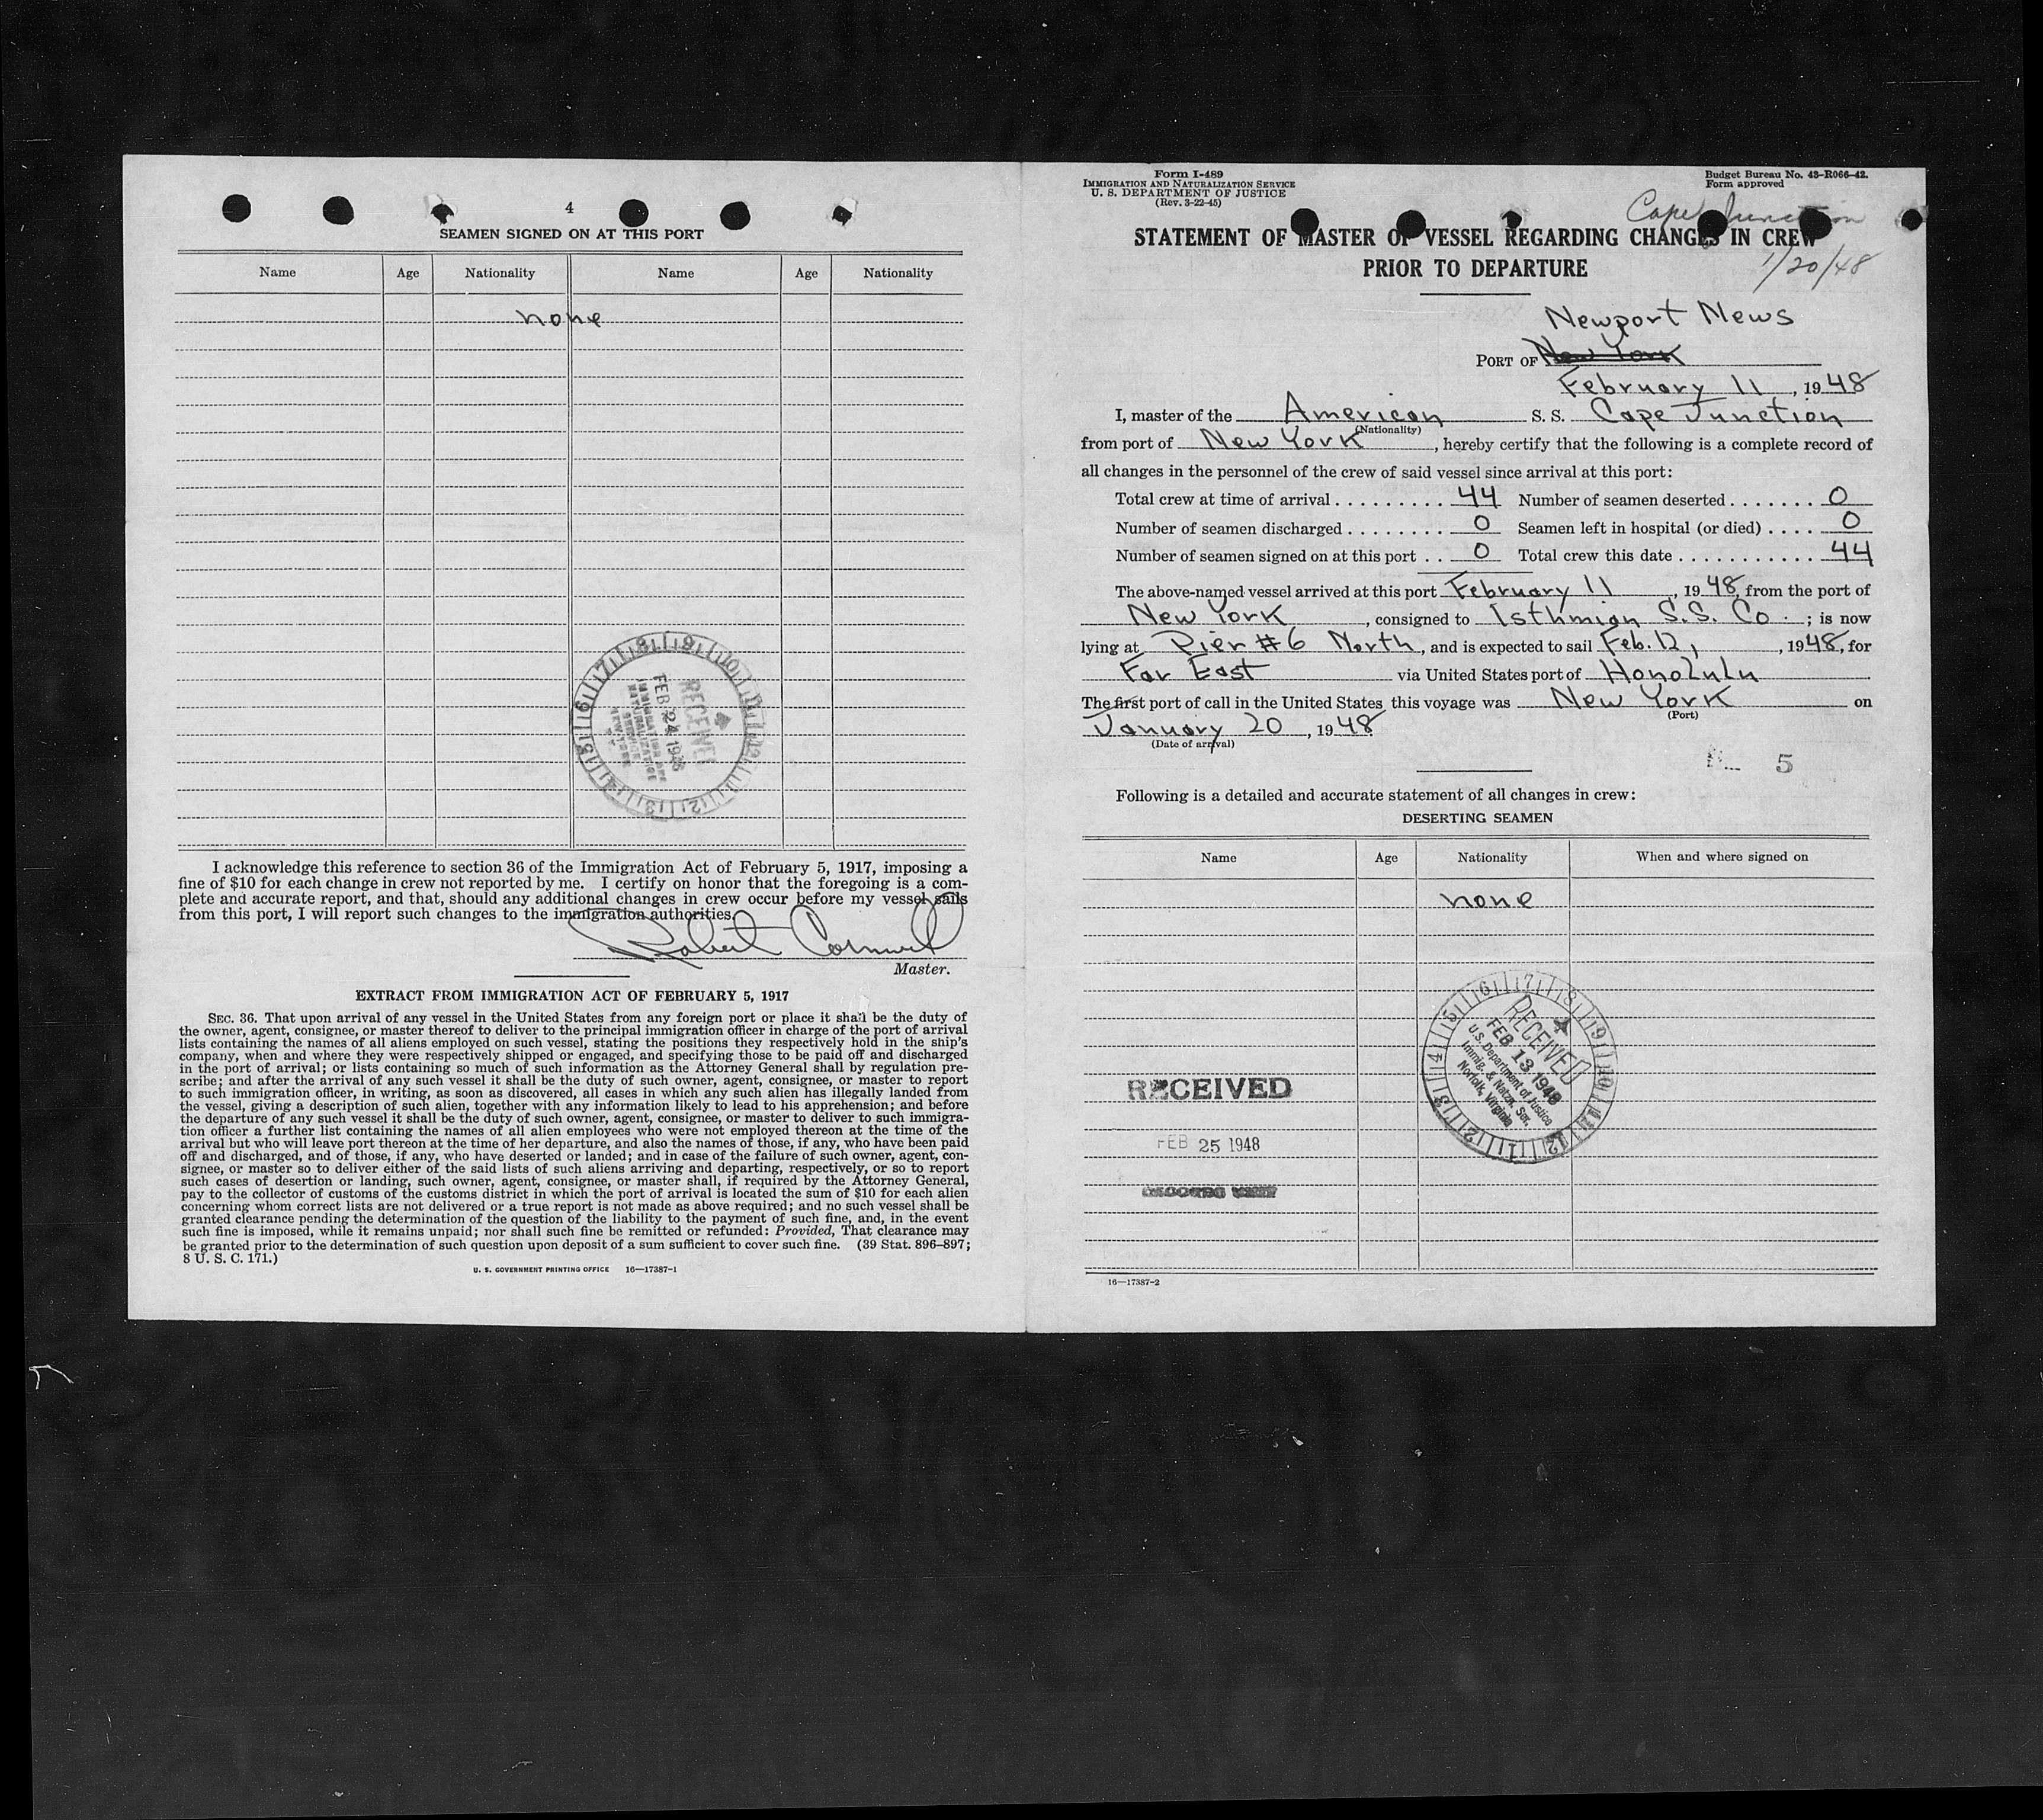 4
SEAMEN SIGNED ON AT THIS PORT
Name Age Nationality Name Age Nationality
none
RECEIVED
FEB 24 1948
IMMIGRATION AND
NATURALIZATION
SERVICE
NEW YORK
I acknowledge this reference to section 36 of the Immigration Act of February 5, 1917, imposing a
fine of $10 for each change in crew not reported by me. I certify on honor that the foregoing is a com-
plete and accurate report, and that, should any additional changes in crew occur before my vessel sails
from this port, I will report such changes to the immigration authorities.
Robert
Master.
EXTRACT FROM IMMIGRATION ACT OF FEBRUARY 5, 1917
SEC. 36. That upon arrival of any vessel in the United States from any foreign port or place it shall be the duty of
the owner, agent, consignee, or master thereof to deliver to the principal immigration officer in charge of the port of arrival
lists containing the names of all aliens employed on such vessel, stating the positions they respectively hold in the ship's
company, when and where they were respectively shipped or engaged, and specifying those to be paid off and discharged
in the port of arrival; or lists containing so much of such information as the Attorney General shall by regulation pre-
scribe; and after the arrival of any such vessel it shall be the duty of such owner, agent, consignee, or master to report
to such immigration officer, in writing, as soon as discovered, all cases in which any such alien has illegally landed from
the vessel, giving a description of such alien, together with any information likely to lead to his apprehension; and before
the departure of any such vessel it shall be the duty of such owner, agent, consignee, or master to deliver to such immigra-
tion officer a further list containing the names of all alien employees who were not employed thereon at the time of the
arrival but who will leave port thereon at the time of her departure, and also the names of those, if any, who have been paid
off and discharged, and of those, if any, who have deserted or landed; and in case of the failure of such owner, agent, con-
signee, or master so to deliver either of the said lists of such aliens arriving and departing, respectively, or so to report
such cases of desertion or landing, such owner, agent, consignee, or master shall, if required by the Attorney General,
pay to the collector of customs of the customs district in which the port of arrival is located the sum of $10 for each alien
concerning whom correct lists are not delivered or a true report is not made as above required; and no such vessel shall be
granted clearance pending the determination of the question of the liability to the payment of such fine, and, in the event
such fine is imposed, while it remains unpaid; nor shall such fine be remitted or refunded: Provided, That clearance may
be granted prior to the determination of such question upon deposit of a sum sufficient to cover such fine. (39 Stat. 896-897;
8 U. S. C. 171.)
U. S. GOVERNMENT PRINTING OFFICE 16—17387-1
Form I-489
IMMIGRATION AND NATURALIZATION SERVICE
U. S. DEPARTMENT OF JUSTICE
(Rev. 3-22-45)
Budget Bureau No. 43-R066-42.
Form approved
Cape Junction
STATEMENT OF MASTER OF VESSEL REGARDING CHANGES IN CREW
PRIOR TO DEPARTURE
1/20/48
Newport News
PORT OF New York
February 11, 1948
I, master of the American S. S. Cape Junction
(Nationality)
from port of New York, hereby certify that the following is a complete record of
all changes in the personnel of the crew of said vessel since arrival at this port:
Total crew at time of arrival . . . . . . . . . 44 Number of seamen deserted . . . . . . . 0
Number of seamen discharged . . . . . . . . 0 Seamen left in hospital (or died) . . . . 0
Number of seamen signed on at this port . . 0 Total crew this date . . . . . . . . . . . 44
The above-named vessel arrived at this port February 11, 1948, from the port of
New York, consigned to Isthmian S.S. Co.; is now
lying at Pier #6 North, and is expected to sail Feb. 12, , 1948, for
Far East via United States port of Honolulu
The first port of call in the United States this voyage was New York on
(Port)
January 20, 1948.
(Date of arrival)
5
Following is a detailed and accurate statement of all changes in crew:
DESERTING SEAMEN
Name Age Nationality When and where signed on
none
RECEIVED
FEB 13 1948
U.S. Department of Justice
Immig. & Natzn. Ser.
Norfolk, Virginia
RECEIVED
FEB 25 1948
16—17387-2